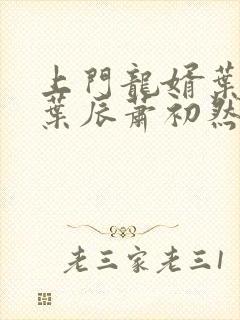 上門龍婿葉
葉辰蕭初然
老三家老三1